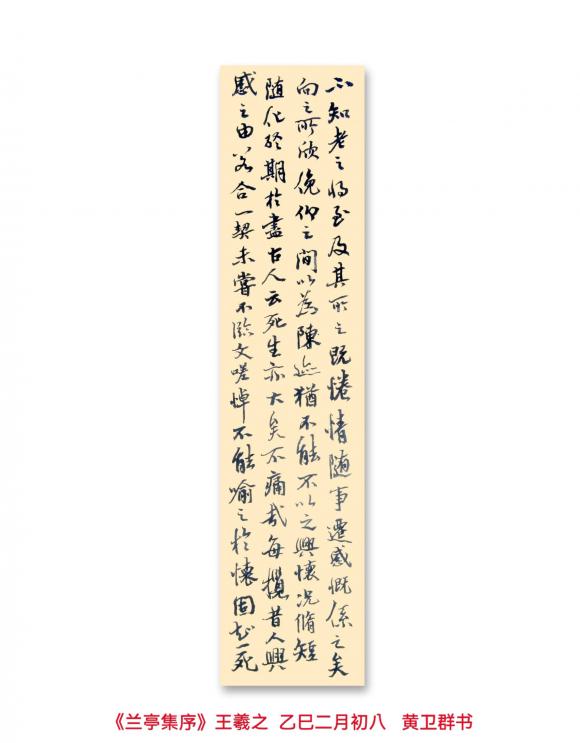 不知老之將至及其所之既惓情随事遷感慨係之矣
向之所欣俛仰之間以為陳迹猶不能不以之興懷况脩短
随化終期於盡古人云死生亦大矣不痛哉每攬昔人興
感之由若合一契未嘗不臨文嗟悼不能喻之於懷固知一死
《兰亭集序》王羲之 乙巳二月初八 黄卫群书